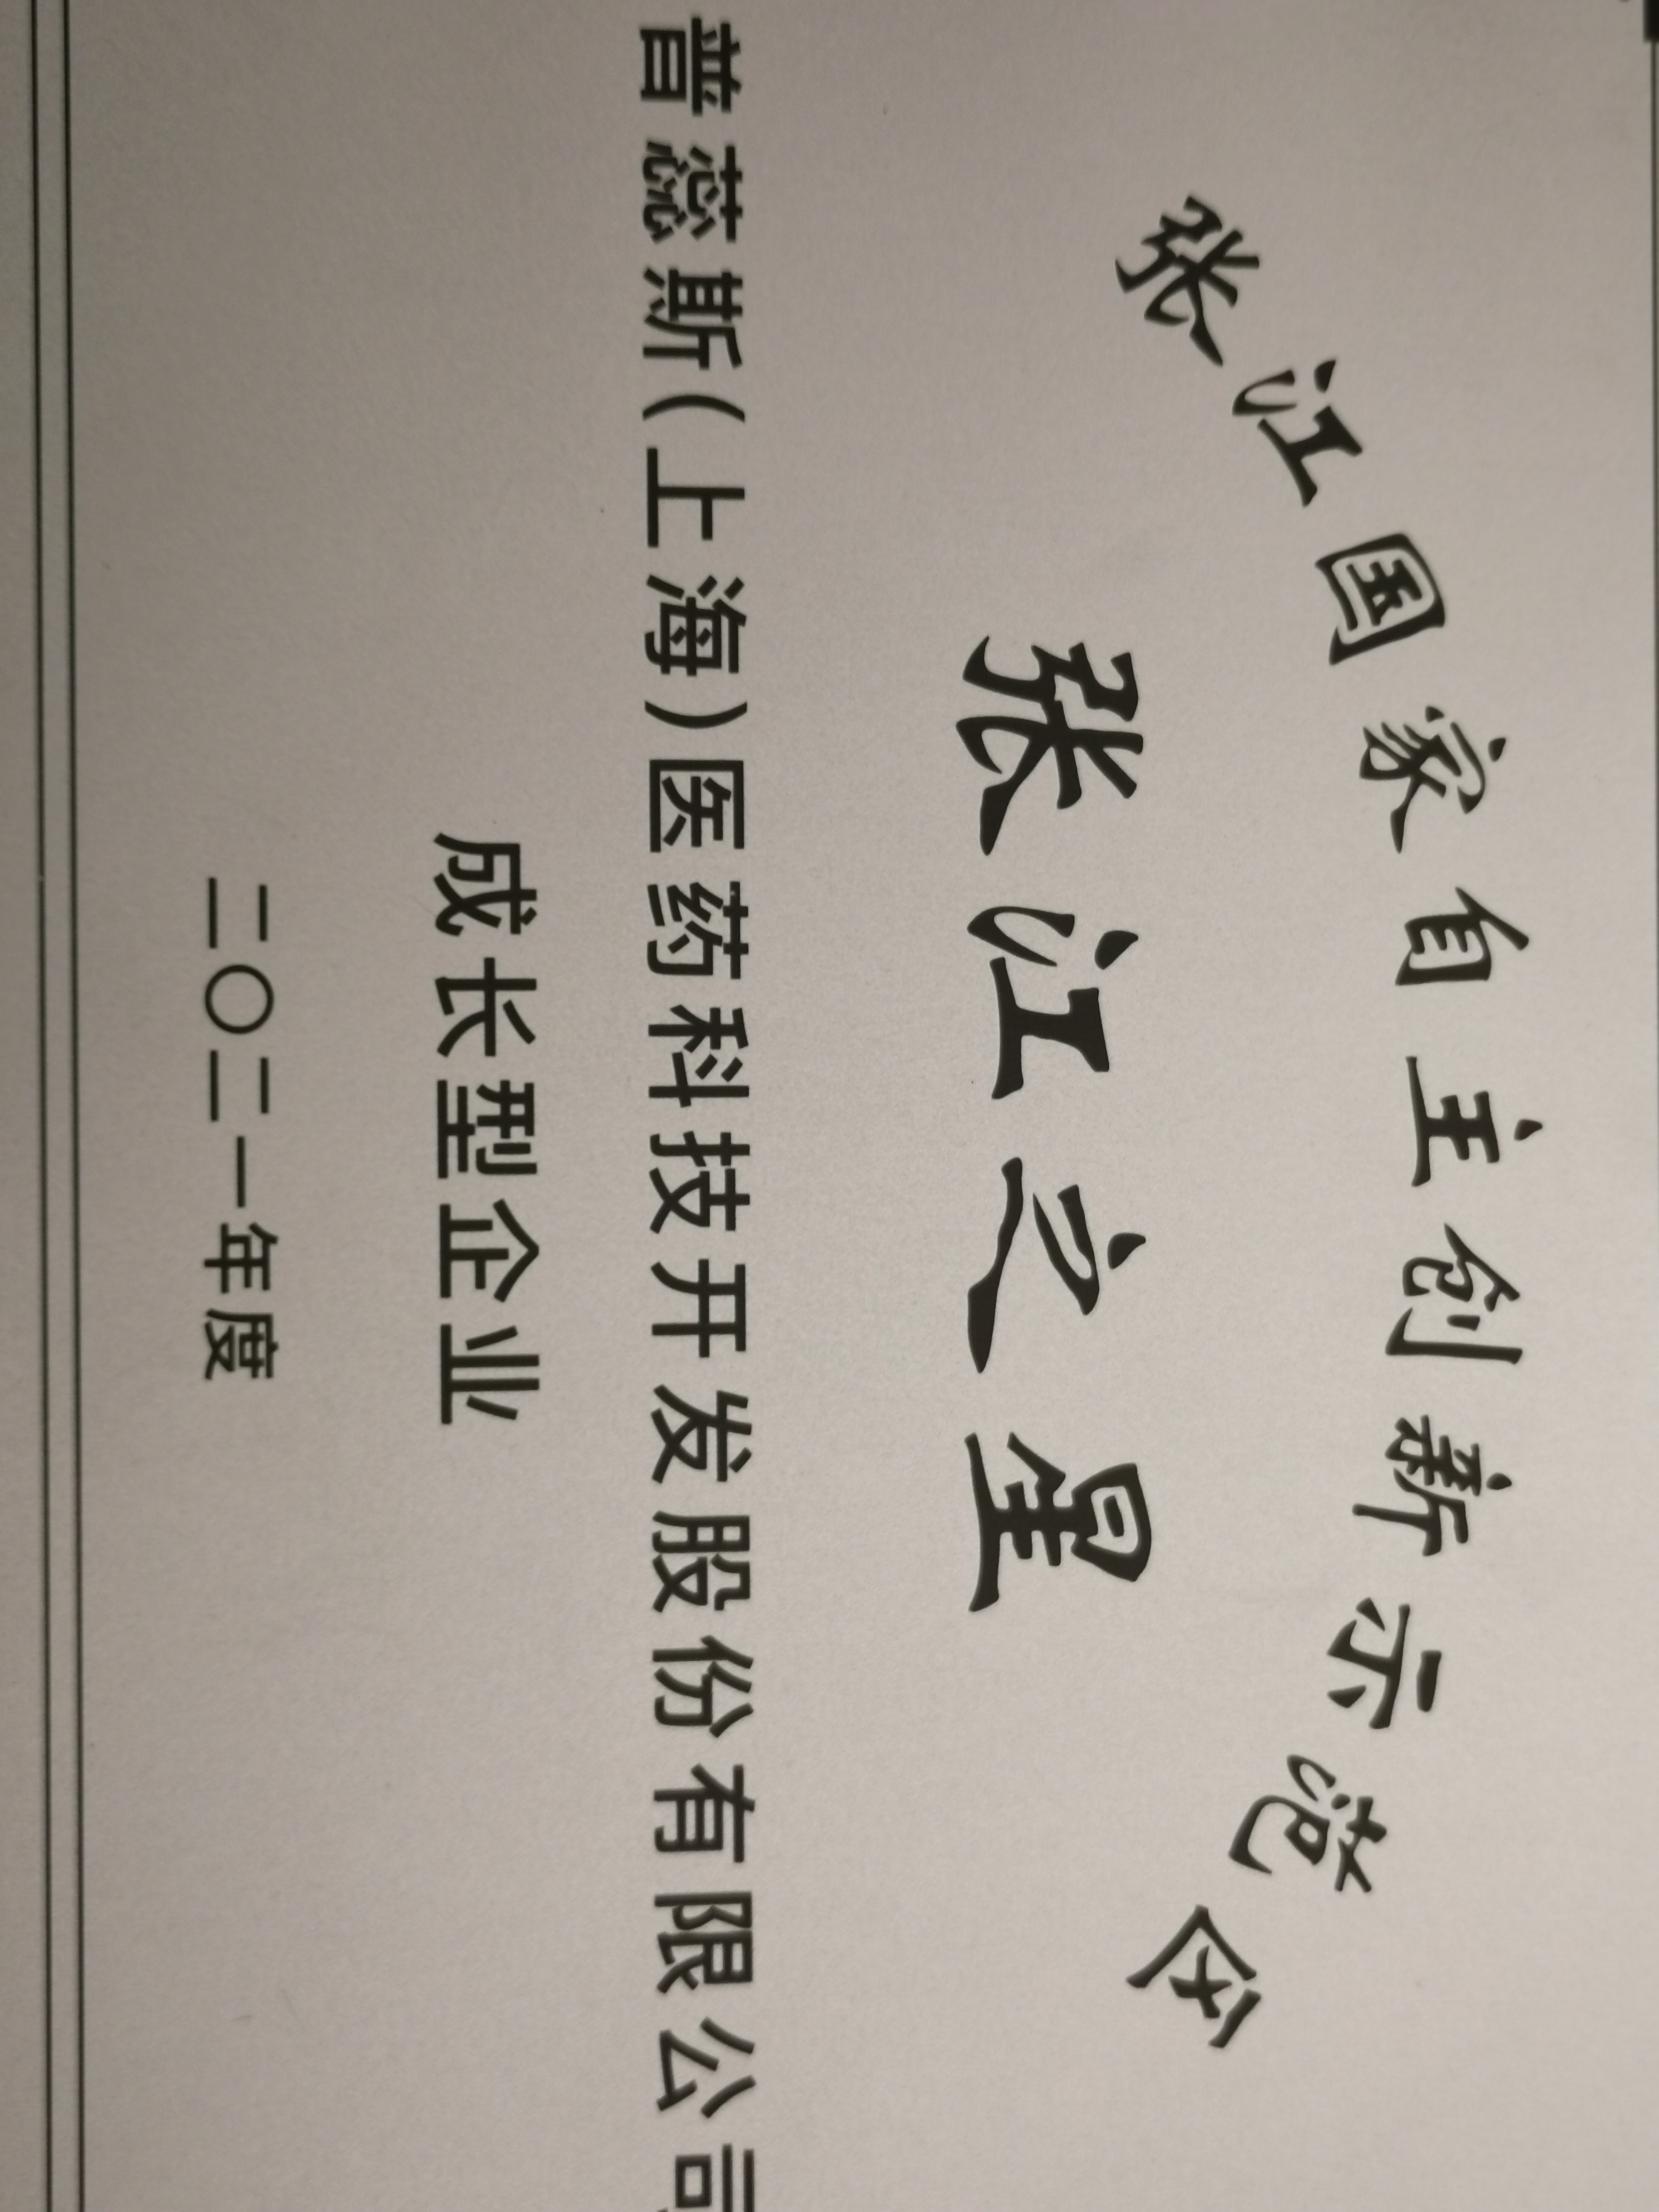 张江国家自主创新示范区
张江之星
普蕊斯(上海)医药科技开发股份有限公司
成长型企业
二〇二一年度